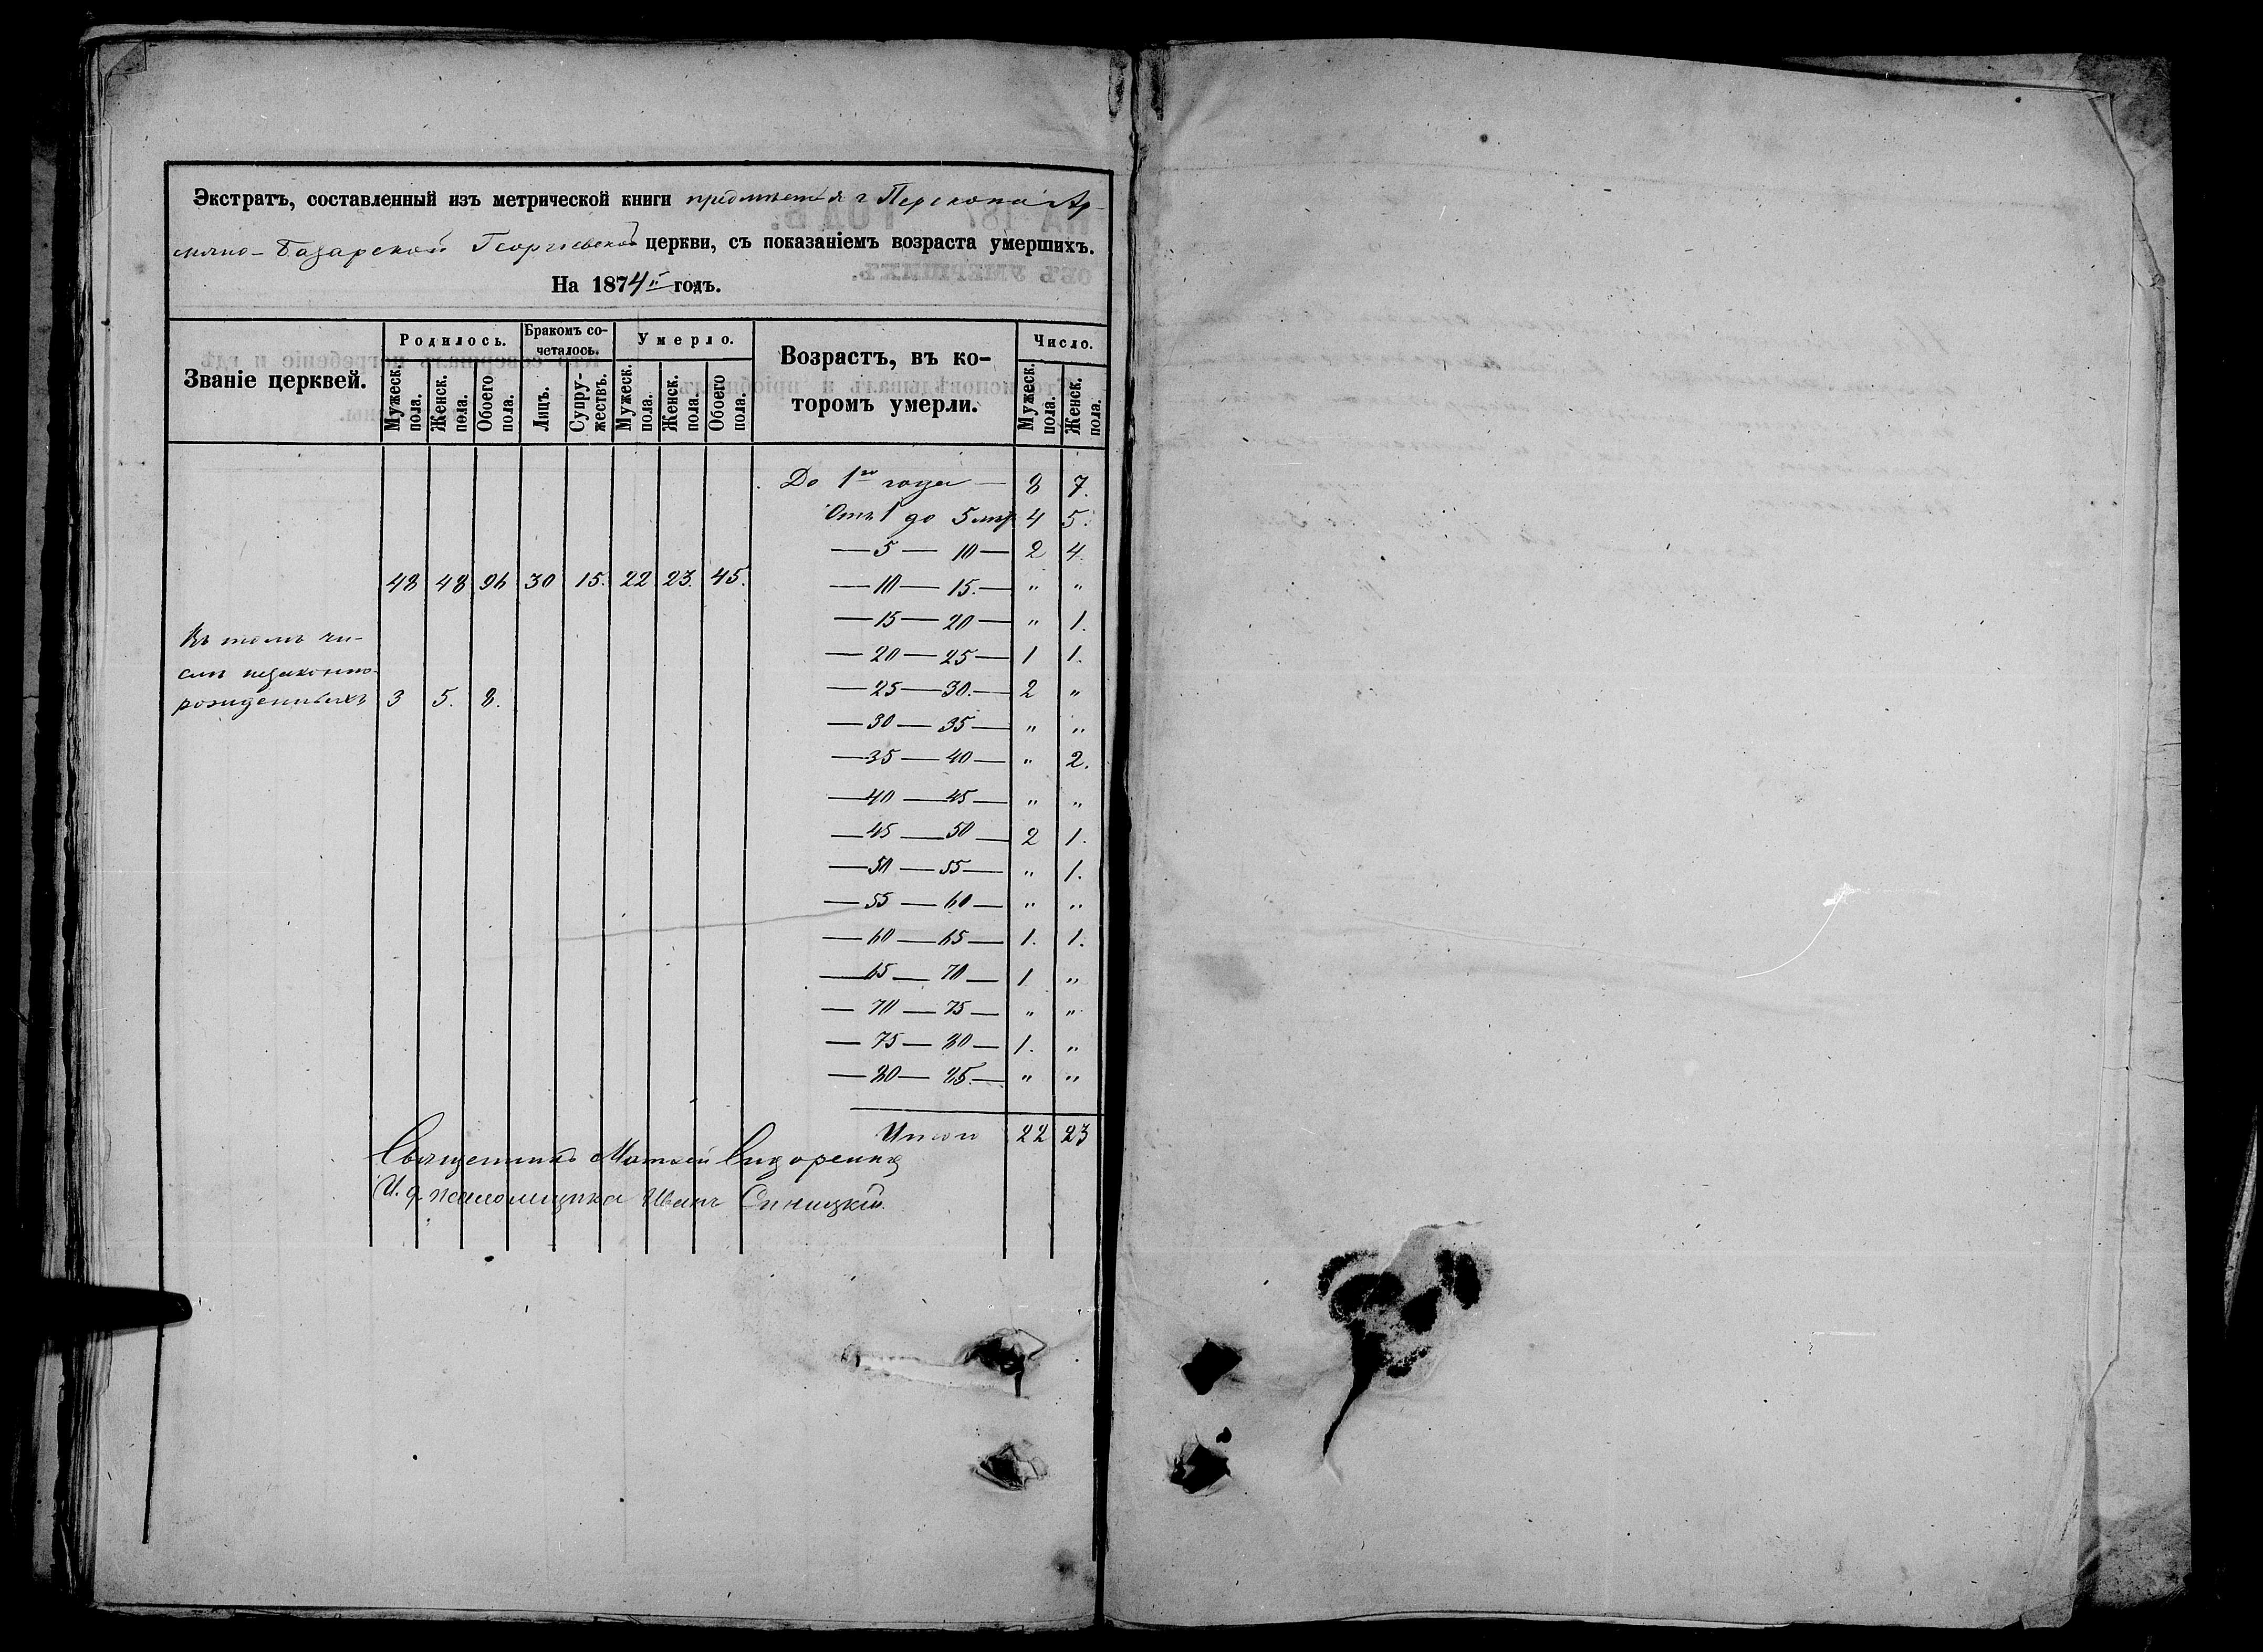 Экстратъ, составленный изъ метрической книги предмѣстья г. Перекопа Ар-
мяно-Базарской Георгіевской церкви, съ показаніемъ возраста умершихъ.
На 1874й годъ.
Званіе церквей. Родилось. Бракомъ сочеталось. Умерло. Возрастъ, въ ко- Число.
тором умерли.
Мужеск. пола. Женск. пола. Обоего пола. Лицъ. Супружествъ. Мужеск. пола. Женск. пола. Обоего пола. Мужеск. пола. Женск. пола.
До 1го года — 8 7.
Отъ 1 до 5 лѣт 4 5.
— 5 — 10 — 2 4.
48 48 96 30 15. 22 23. 45. — 10 — 15. — " "
— 15 — 20 — " 1.
Въ томъ чи-
— 20 — 25 — 1 1.
слѣ незаконно-
рожденныхъ 3 5. 8. — 25 — 30. — 2 "
— 30 — 35 — " "
— 35 — 40 — " 2.
— 40 — 45 — " "
— 45 — 50 — 2 1.
— 50 — 55 — " 1.
— 55 — 60 — " "
— 60 — 65 — 1. 1.
— 65 — 70 — 1 "
— 70 — 75 — " "
— 75 — 80 — 1. "
— 80 — 85. — " "
Итого 22 23
Священникъ Матѳей Сидоренко
И. д. псаломщика Иванъ Синицкій.